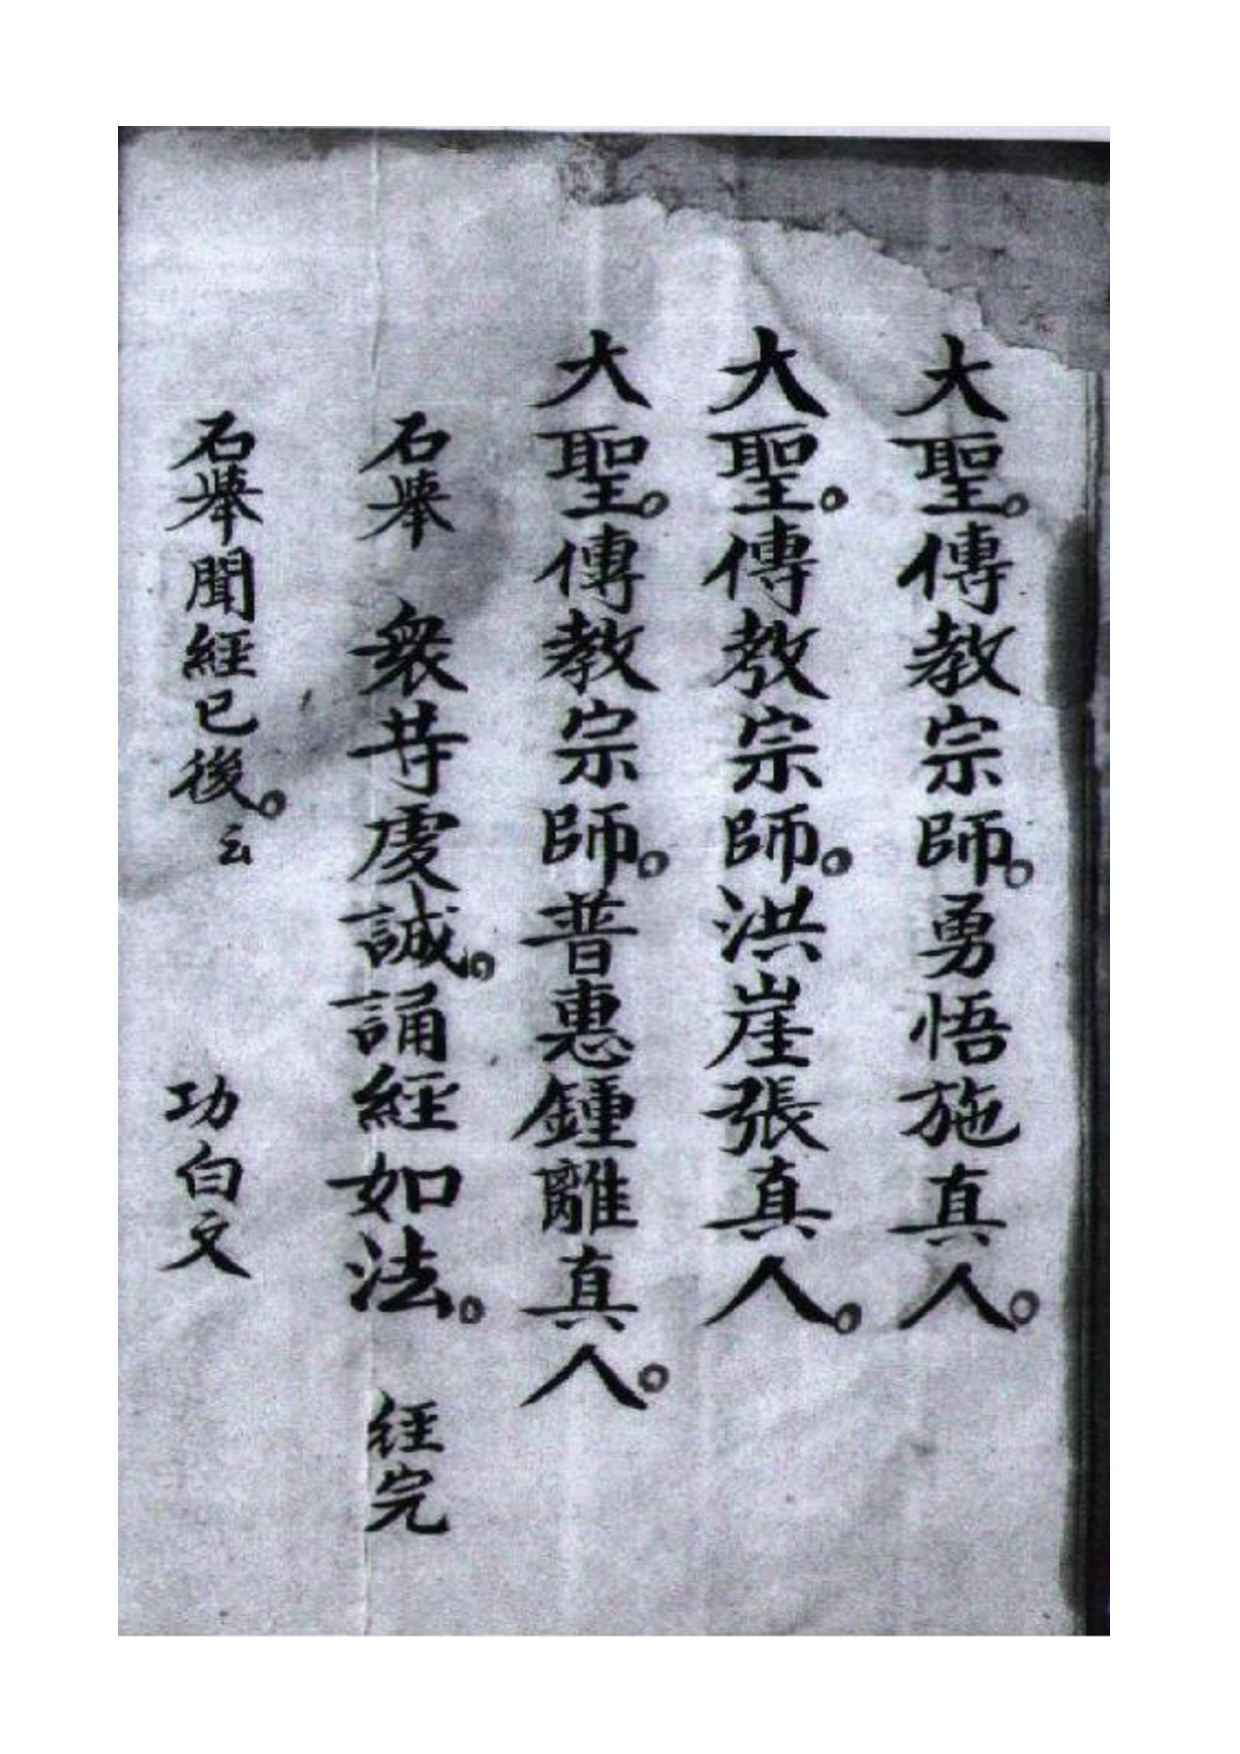 大聖。傳教宗師。勇悟施真人。
大聖。傳教宗師。洪崖張真人。
大聖。傳教宗師。普惠鍾離真人。
石舉 衆等虔誠。誦經如法。 経完
石舉聞經已後。云 功白文